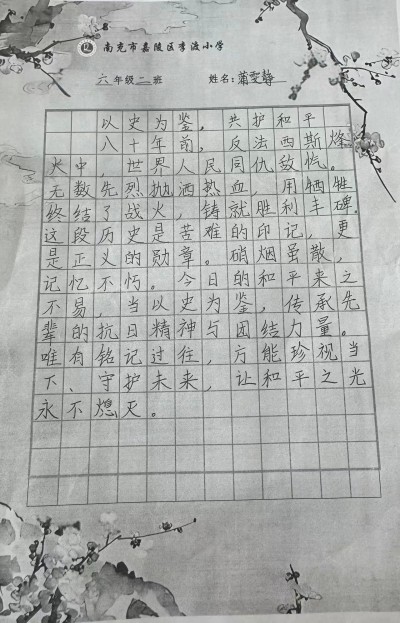 南充市嘉陵区李渡小学
六年级二班 姓名:蒲雯静
以史为鉴,共护和平
八十年前,反法西斯烽
火中,世界人民同仇敌忾。
无数先烈抛洒热血,用牺牲
终结了战火,铸就胜利丰碑。
这段历史是苦难的印记,更
是正义的勋章。硝烟虽散,
记忆不朽。今日的和平来之
不易,当以史为鉴,传承先
辈的抗日精神与团结力量。
唯有铭记过往,方能珍视当
下、守护未来,让和平之光
永不熄灭。